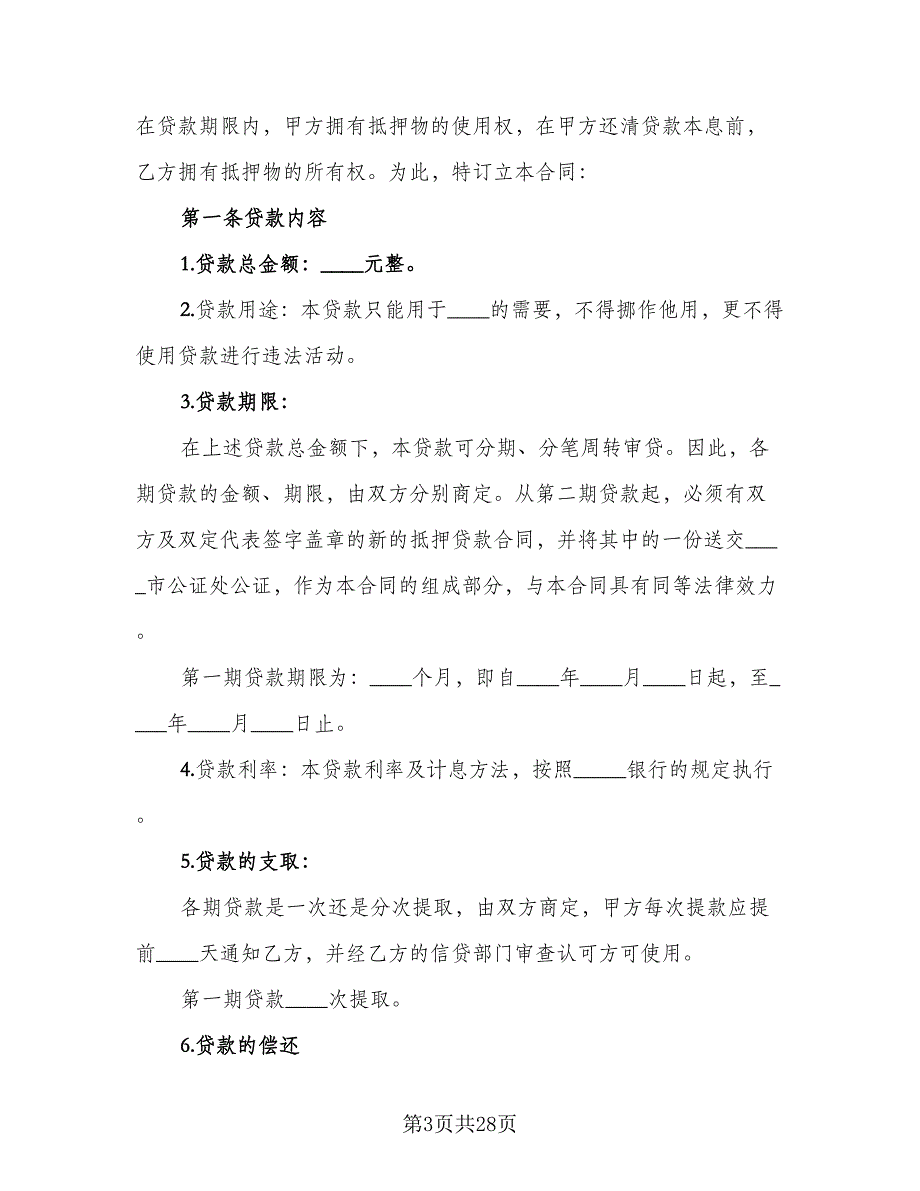 在贷款期限内，甲方拥有抵押物的使用权，在甲方还清贷款本息前，
乙方拥有抵押物的所有权。为此，特订立本合同：
第一条贷款内容
1.贷款总金额：____元整。
2.贷款用途：本贷款只能用于____的需要，不得挪作他用，更不得
使用贷款进行违法活动。
3.贷款期限：
在上述贷款总金额下，本贷款可分期、分笔周转审贷。因此，各
期贷款的金额、期限，由双方分别商定。从第二期贷款起，必须有双
方及双定代表签字盖章的新的抵押贷款合同，并将其中的一份送交___
_市公证处公证，作为本合同的组成部分，与本合同具有同等法律效力
。
第一期贷款期限为：____个月，即自____年____月____日起，至_
___年____月____日止。
4.贷款利率：本贷款利率及计息方法，按照_____银行的规定执行
。
5.贷款的支取：
各期贷款是一次还是分次提取，由双方商定，甲方每次提款应提
前____天通知乙方，并经乙方的信贷部门审查认可方可使用。
第一期贷款____次提取。
6.贷款的偿还
第3页共28页